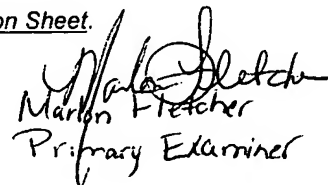 on Sheet.
Marlon Fletcher
Marlon Fletcher
Primary Examiner